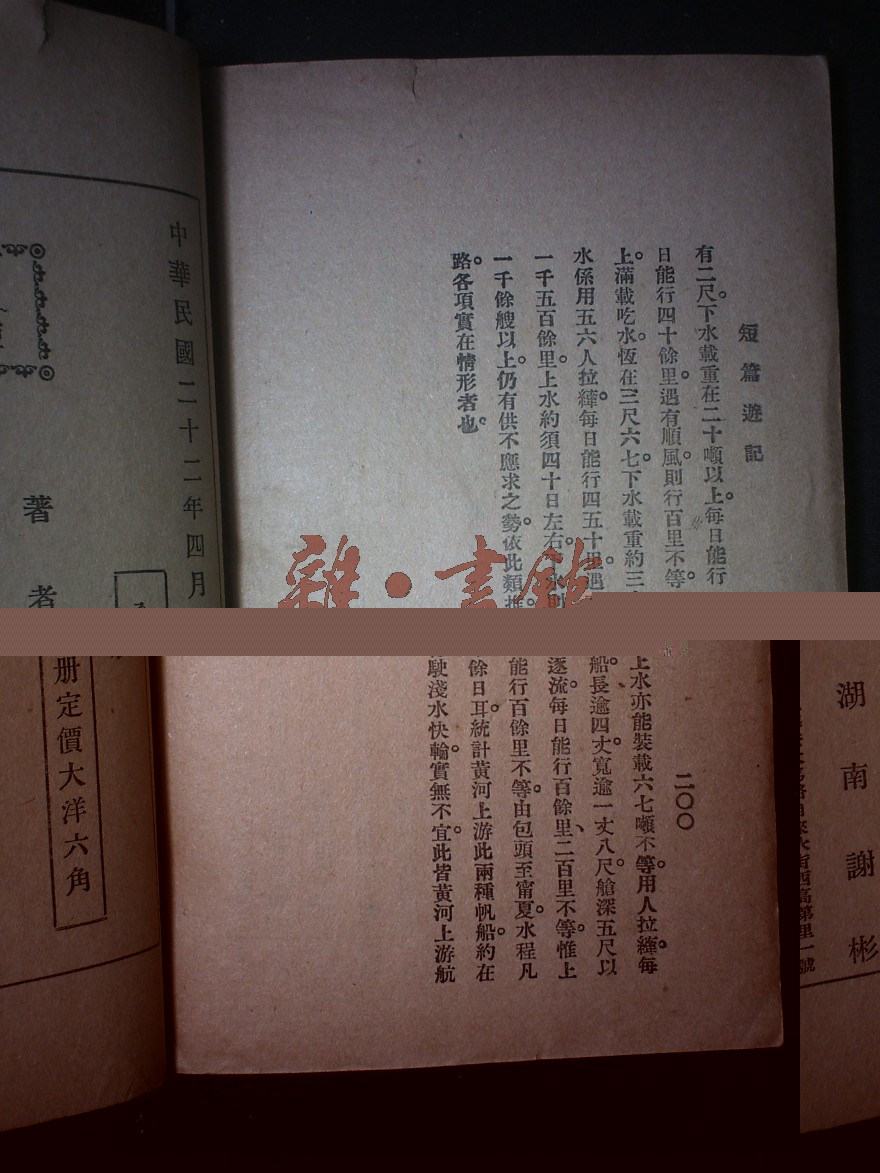 短篇遊記 二〇〇
有二尺。下水載重在二十噸以上。每日能行上水亦能裝載六七噸不等。用人拉縴。每
日能行四十餘里。遇有順風則行百里不等。船長逾四丈。寬逾一丈八尺。艙深五尺以
上。滿載吃水。恆在三尺六七。下水載重約三逐流。每日能行百餘里、二百里不等。惟上
水係用五六人拉縴。每日能行四五十里。遇能行百餘里不等。由包頭至甯夏。水程凡
一千五百餘里。上水約須四十日左右。下水則餘日耳。統計黃河上游此兩種帆船。約在
一千餘艘以上。仍有供不應求之勢。依此類推。駛淺水快輪。實無不宜。此皆黃河上游航
路各項實在情形者也。
雜·書館
中華民國二十二年四月
著者
湖南謝彬
册定價大洋六角